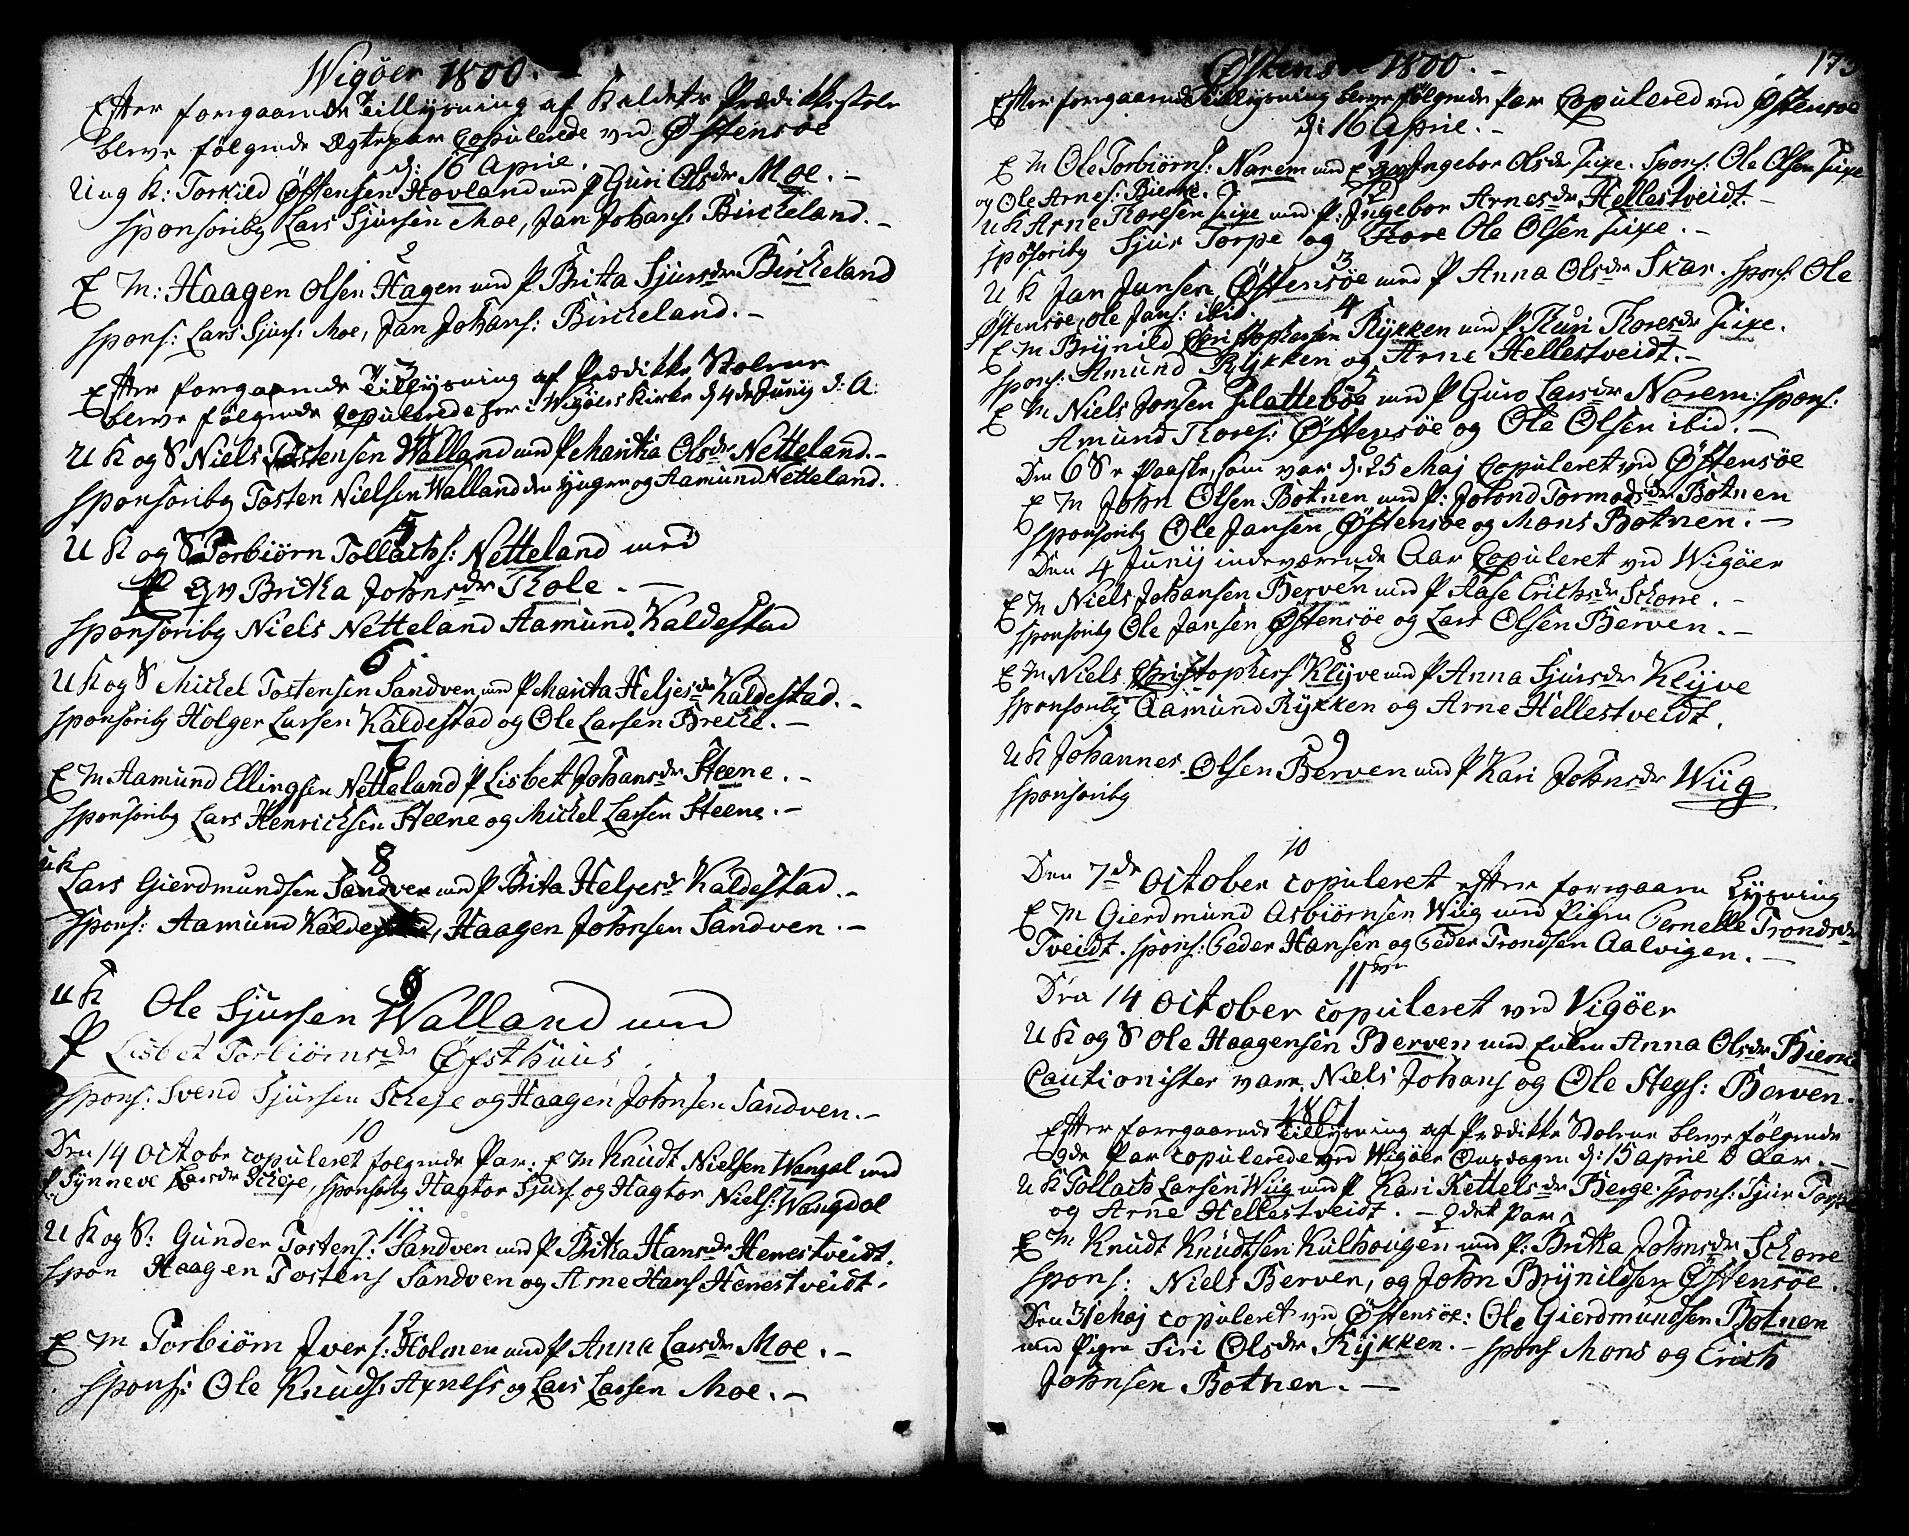 Wigøer 1800.
Efter foregaaende Tillysning af Kaldets Prædikkestole
bleve følgende Ægtepar Copulerede ved Østensøe
d: 16 April.
1
Ung K: Torkild Østensen Hovland med P Guri Olsdr Moe. -
Sponsoriby Lars Sjursen Moe, Jan Johans: Birckeland. -
2
E M: Haagen Olsen Hagen med P Brita Sjursdr Birckeland
Spons: Lars Sjurs: Moe, Jan Johans: Birckeland. -
3
Efter foregaaende Tillysning af Prædikke Stolene
bleve følgende Copulerede her i Wigøers Kirke d 4de Junij d: A:
4
U K og S Niels Tostensen Walland med P Marita Olsdr Netteland. -
Sponsoriby Tosten Nielsen Walland den yngre og Aamund Netteland.
5
U K og S Torbiørn Tollachs: Netteland med
P Britha Johnsdr Thole. -
Sponsoriby Niels Netteland Aamund Kaldestad
6
U K og S Michel Tostensen Sandven med P Marita Heljesdr Kaldestad. -
Sponsoriby Holger Larsen Kaldestad og Ole Larsen Brecke. -
7
E M Aamund Ellingsen Netteland P Lisbet Johansdr Steene. -
Sponsoriby Lars Henricksen Steene og Michel Larsen Steene. -
8
U K Lars Gierdmundsen Sandven med P Brita Heljesdr Kaldestad. -
Spons: Aamund Kaldestad, Haagen Johnsen Sandven. -
9
U K Ole Sjursen Walland med
P Lisbet Torbiørnsdr Øfsthuus
Spons: Svend Sjursen Scheje og Haagen Johnsen Sandven. -
10
Den 14 Octobr copuleret følgende Par: E M Knudt Nielsen Wangdal med
P Synneve Larsdr Scheje, Sponsoriby Hagtor Sjurs: og Hagtor Niels: Wangdal
11
U K og S: Gunder Tostens: Sandven med P Britha Hansdr Henestveidt.
Spon Haagen Tostens Sandven og Arne Hans Henestveidt.
12
E M Torbiørn Ivers: Holmen med P Anna Larsdr Moe. -
Spons: Ole Knuds: Axness og Lars Larsen Moe. -
Østensøe 1800. - 173
Efter foregaaende Tillysning bleve følgende Par Copulered ved Østensøe
d: 16 April. -
1
E M Ole Torbiørns: Narem med Ingebor Olsdr Fixe. Spons: Ole Olsen Fixe
og Ole Arnes: Bierke.
2
U K Arne Thoresen Fixe med P: Ingebor Arnesdr Hellestveidt. -
Spoṡoriby Sjur Torpe og Ole Olsen Fixe. -
3
U K Jan Jansen Østensøe med P Anna Olsdr Skar. Spons: Ole
Østensøe, Ole Jans: ibid.
4
E M Brynild Christophersen Rykken med P. Thuri Thoresdr Fixe.
Spons: Amund Rykken og Arne Hellestveidt. -
5
E M Niels Jonsen Flattebøe med P Guro Larsdr Narem: Spons:
Amund Thores: Østensøe og Ole Olsen ibid. -
Den 6 S e Paaske, som var d: 25 Maj Copuleret ved Østensøe
E M John Olsen Botnen med P: Jorond Tormodsdr Botnen
Sponsoriby Ole Jansen Østensøe og Mons Botnen. -
Den 4 Junij indeværende Aar Copuleret ved Wigøer
7
E M Niels Johansen Berven med P Aase Erichsdr Schorre. -
Sponsoriby Ole Jansen Østensøe og Lars Olsen Berven. -
8
E M Niels Christophers Klyve med P Anna Sjursdr Klyve
Sponsoriby Aamund Rykken og Arne Hellestveidt.
9
U K Johannes Olsen Berven med P Kari Johnsdr Wiig
Sponsoriby
10
Den 7de October copuleret efter foregaaen Lysning
E M Gierdmund Asbiørnsen Wiig med Pigen Pernelle Trondsdr
Tveidt. Spons: Peder Hansen og Peder Trondsen Aalvigen. -
11
Den 14 October copuleret ved Vigøer
U K og S Ole Haagensen Berven med Enken Anna Olsdr Bierke
Cautionister vare Niels Johans og Ole Steg: Berven.
1801
Efter foregaaende Tillysning af Prædikke Stolene bleve følgende
Par copulerede ved Wigøer Onsdagen d: 15 april d Aar. -
U K Tollach Larsen Wiig med P Kari Kettelsdr Berge. Spons: Sjur Torpe
og Arne Hellestveidt. - 2det Par
E M Knudt Knudtsen Kulhougen med P: Britha Johnsdr Schorre
Spons: Niels Berven, og John Brynildsen Østensøe.
Den 31 Maj copuleret ved Østensøe: Ole Gierdmundsen Botnen
med Pigen Siri Olsdr Rykken. - Spons Mons og Erich
Johnsen Botnen. -